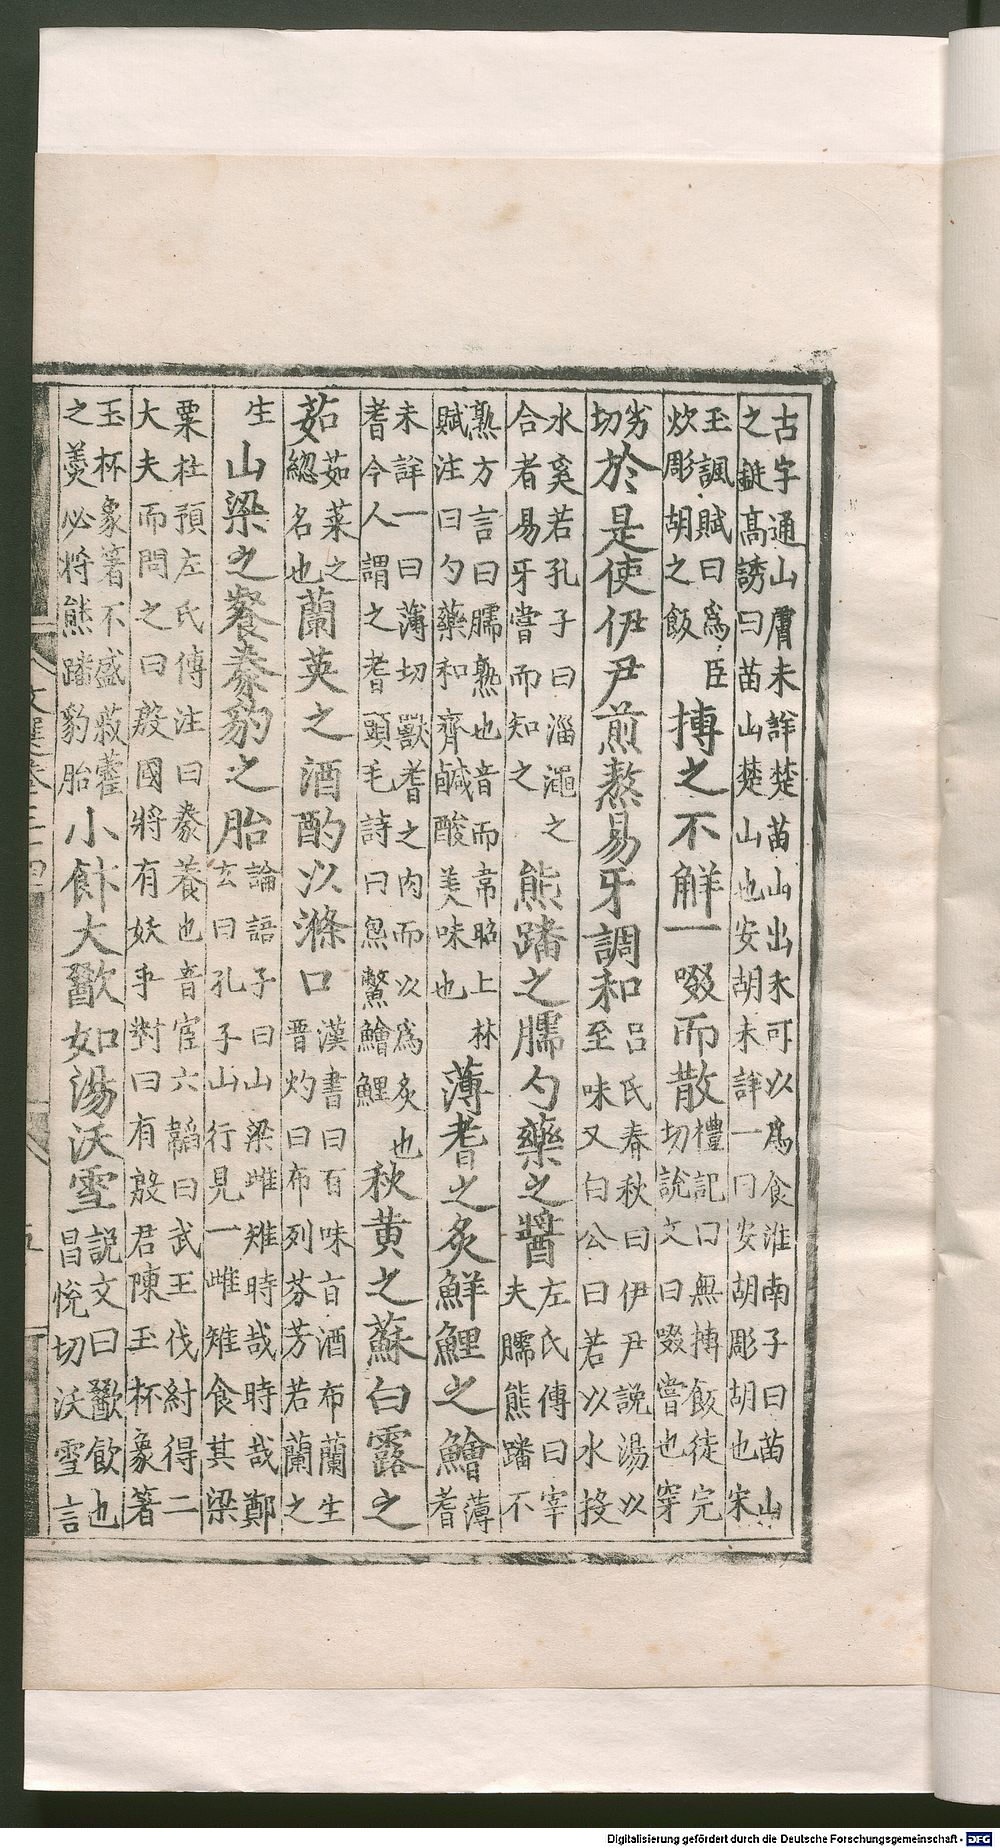 古字通山膚未詳楚苗山出禾可以爲食淮南子曰苗山
之鋋高誘曰苗山楚山也安胡未詳一曰安胡彫胡也宋
玉諷賦曰爲臣
炊彫胡之飯
搏之不觧一啜而散
禮記曰無搏飯徒完
切說文曰啜嘗也穿
劣
切
於是使伊尹煎熬易牙調和
呂氏春秋曰伊尹說湯以
至味又白公曰若以水投
水奚若孔子曰淄澠之
合者易牙嘗而知之
熊蹯之臑勺藥之醬
左氏傳曰宰
夫臑熊蹯不
熟方言曰臑熟也音而韋昭上林
賦注曰勺藥和齊鹹酸美味也
薄耆之炙鮮鯉之鱠
薄
耆
未詳一曰薄切獸耆之肉而以爲炙也
耆今人謂之耆頭毛詩曰炰鱉鱠鯉
秋黃之蘇白露之
茹
茹菜之
緫名也
蘭英之酒酌以滌口
漢書曰百味旨酒布蘭生
晋灼曰布列芬芳若蘭之
生
山梁之餐豢豹之胎
論語子曰山梁雌雉時哉時哉鄭
玄曰孔子山行見一雌雉食其梁
粟杜預左氏傳注曰豢養也音宦六韜曰武王伐紂得二
大夫而問之曰殷國將有妖乎對曰有殷君陳玉杯象箸
玉杯象箸不盛菽藿
之羹必將熊蹯豹胎
小飰大歠如湯沃雪
說文曰歠飲也
昌悅切沃雪言
文選卷三十四
五
Digitalisierung gefördert durch die Deutsche Forschungsgemeinschaft - DFG